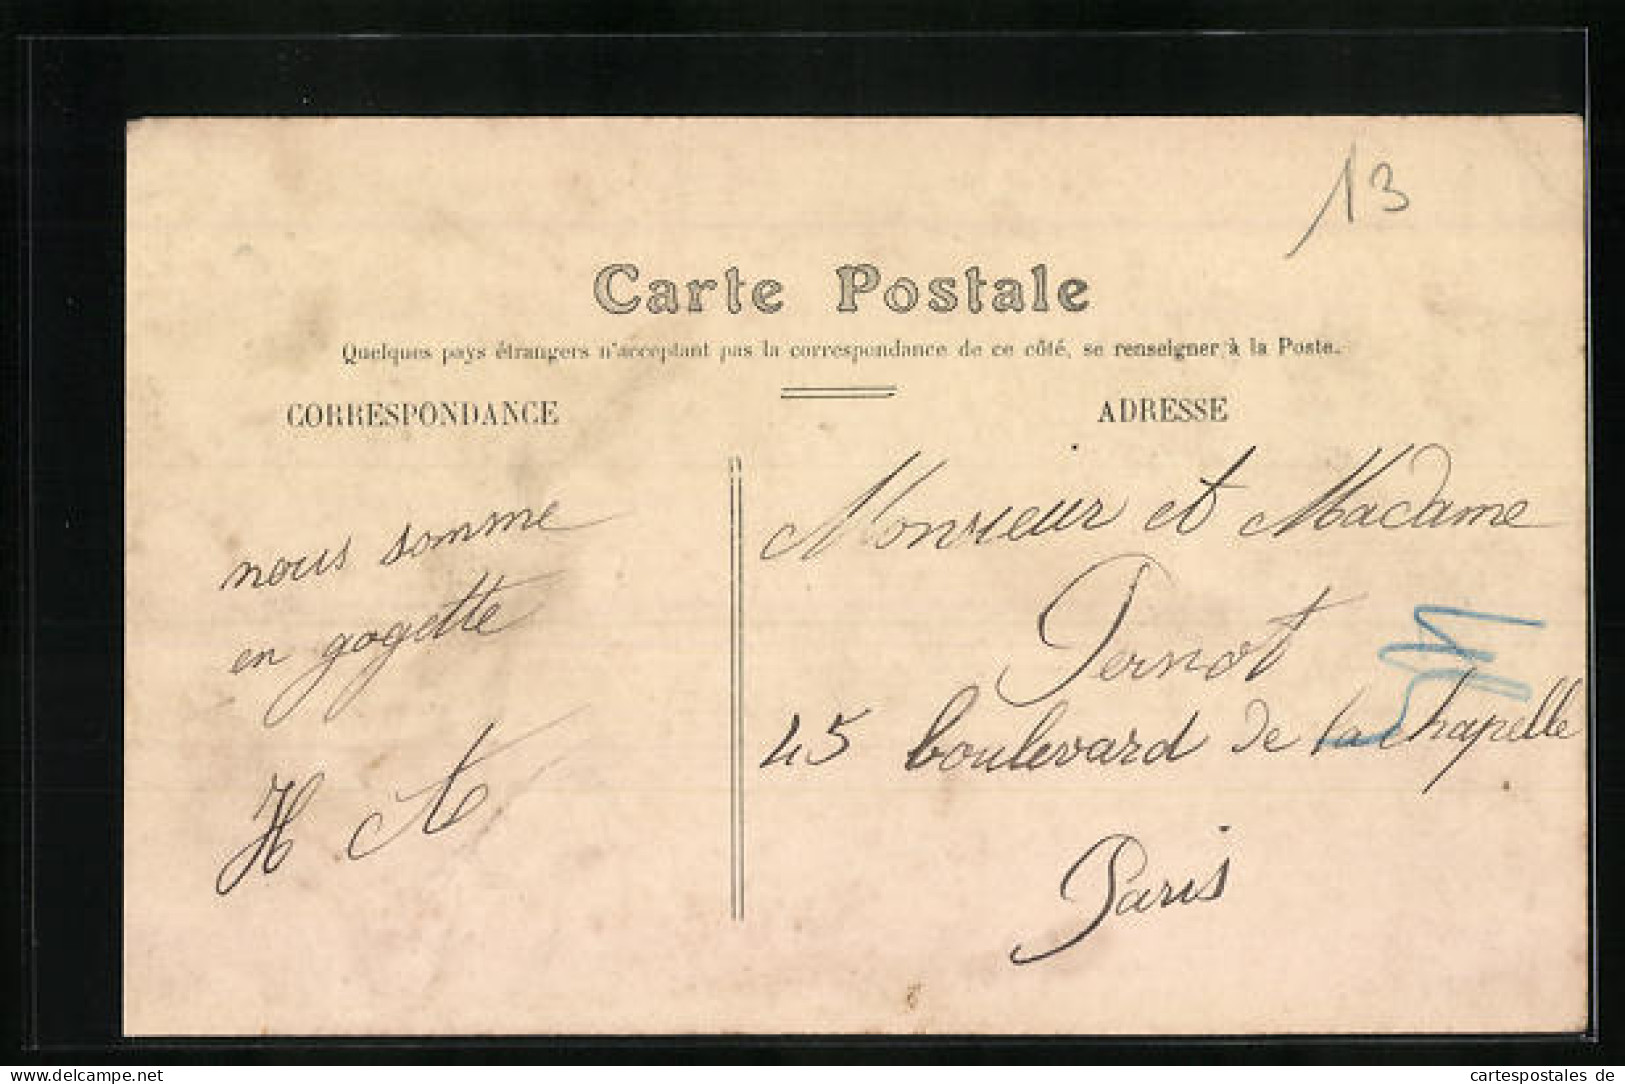 13
Carte Postale
Quelques pays étrangers n'acceptant pas la correspondance de ce côté, se renseigner à la Poste.
CORRESPONDANCE
nous somme
en gogette
H
ADRESSE
Monsieur et Madame
Pernot
45 boulevard de la chapelle
Paris
www.oldthing.com
cartespostales de